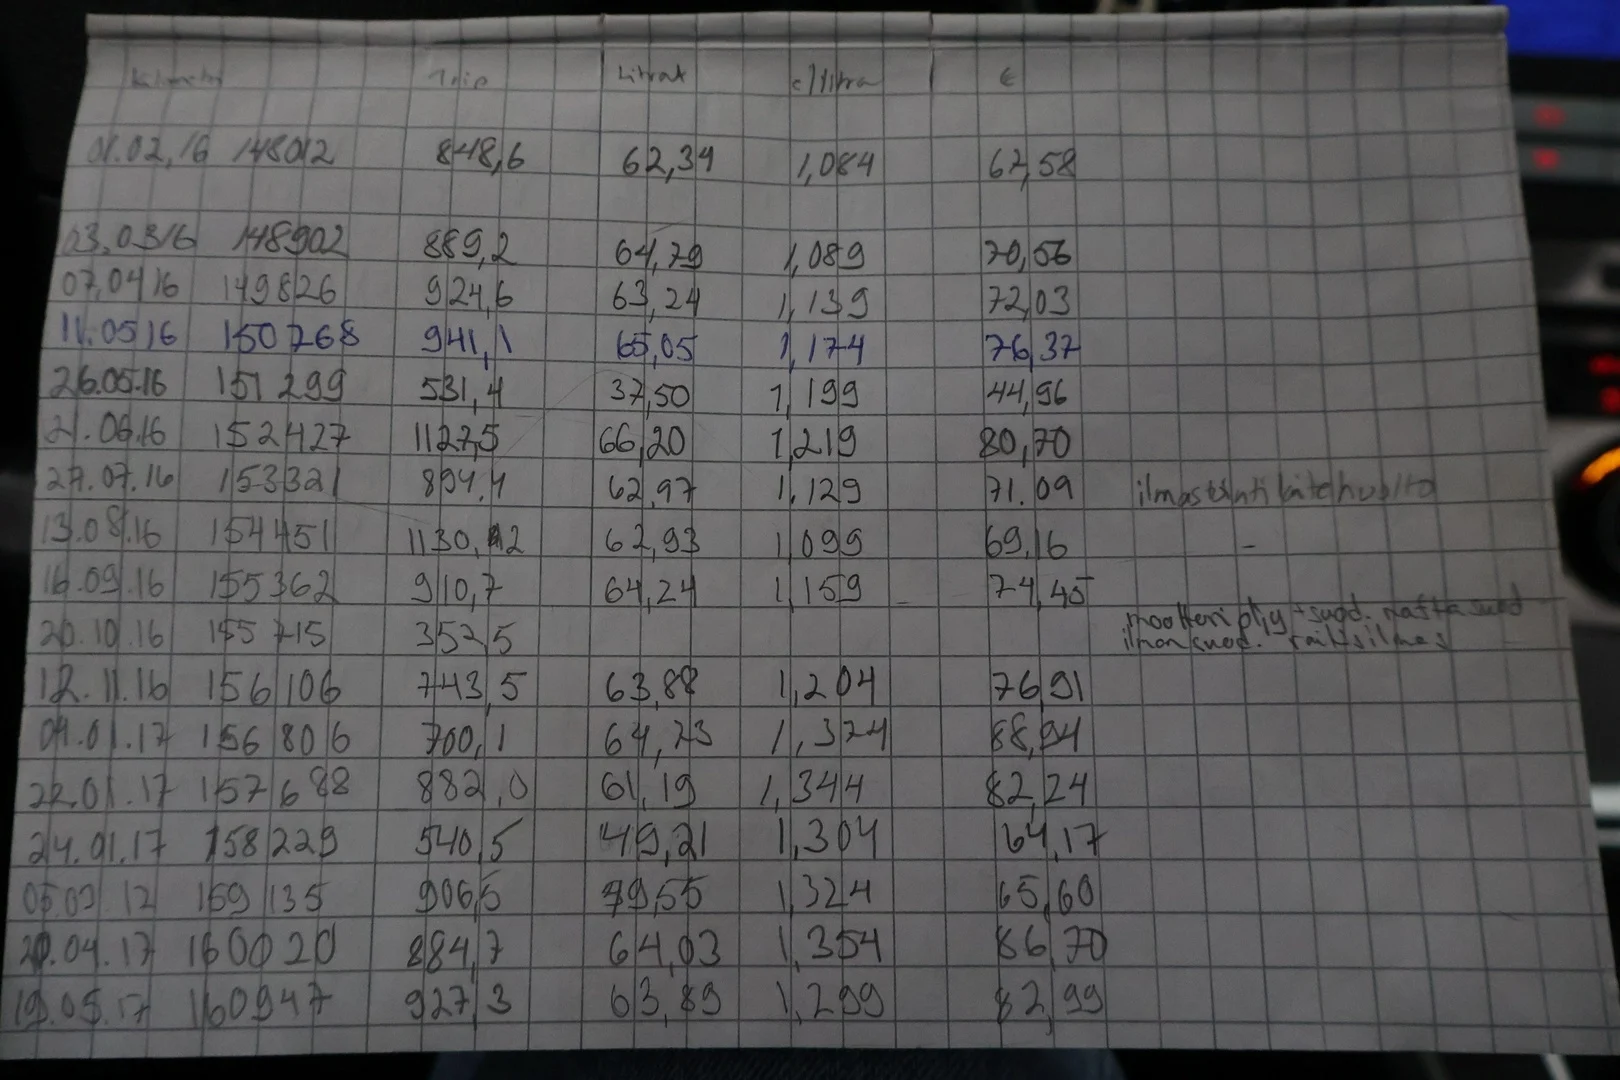 Kilometri Trip Litrat €/litra €
01.02,16 148012 848,6 62,34 1,084 67,58
03,0316 148902 889,2 64,79 1,089 70,56
07,0416 149826 924,6 63,24 1,139 72,03
11.0516 150768 941,1 65,05 1,174 76,37
26.05.16 151299 531,4 37,50 1,199 44,96
21.06.16 152427 1127,5 66,20 1,219 80,70
27.07.16 153321 894,4 62,97 1,129 71.09 ilmastointilaitehuolto
13.08.16 154451 1130,2 62,93 1,099 69,16 -
16.09.16 155362 910,7 64,24 1,159 74,45
20.10.16 155715 352,5 moottoriöljy + suod.
ilmansuod.
12.11.16 156106 743,5 63,88 1,204 76,91
04.01.17 156806 700,1 64,73 1,374 88,94
22.01.17 157688 882,0 61,19 1,344 82,24
24.01.17 158229 540,5 49,21 1,304 64,17
159135 906,5 49,55 1,324 65,60
20.04.17 160020 884,7 64,03 1,354 86,70
19.05.17 160947 927,3 63,89 1,299 82,99